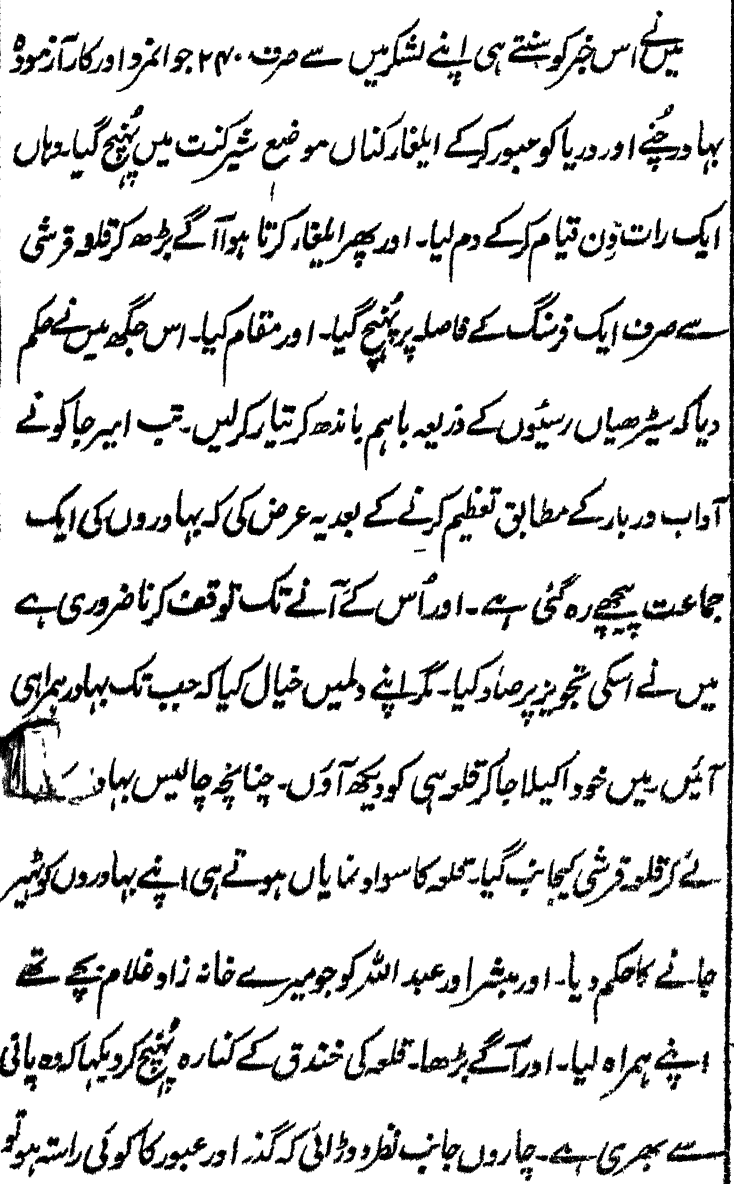 میں نے اس خبر کو سنتے ہی اپنے لشکر میں سے صرف ۲۴۰ جوانمرد اور کار آزمودہ
بہادر چُنے اور دریا کو عبور کرکے ایلغار کناں موضع شیرکنت میں پُہنچ گیا۔ وہاں
ایک رات دِن قیام کرکے دم لیا۔ اور پھر ایلغار کرتا ہوا آگے بڑھ کر قلعہ قرشی
سے صرف ایک فرسنگ کے فاصلہ پر پُہنچ گیا۔ اور مقام کیا۔ اس جگھ میں نے حکم
دیا کہ سیڑھیاں رسیّوں کے ذریعہ باہم باندھ کر تیار کرلیں۔ تب امیر جاکو نے
آداب دربار کے مطابق تعظیم کرنے کے بعد یہ عرض کی کہ بہادروں کی ایک
جماعت پیچھے رہ گئی ہے۔ اور اُس کے آنے تک توقف کرنا ضروری ہے
میں نے اسکی تجویز پر صاد کیا۔ مگر اپنے دلمیں خیال کیا کہ جب تک بہادر ہمراہی
آئیں۔ میں خود اکیلا جاکر قلعہ ہی کو دیکھ آؤں۔ چنانچہ چالیس بہادر
لے کر قلعہ قرشی کیجانب گیا۔ قلعہ کا سواد نمایاں ہوتے ہی اپنے بہادروں کو ٹہیر
جانے کا حکم دیا۔ اور مبشر اور عبد اللہ کو جو میرے خانہ زاد غلام بچے تھے
اپنے ہمراہ لیا۔ اور آگے بڑھا۔ قلعہ کی خندق کے کنارہ پُہنچ کر دیکہا کہ وہ پانی
سے بھری ہے۔ چاروں جانب نظر دوڑائی کہ گذر اور عبور کا کوئی راستہ ہو تو